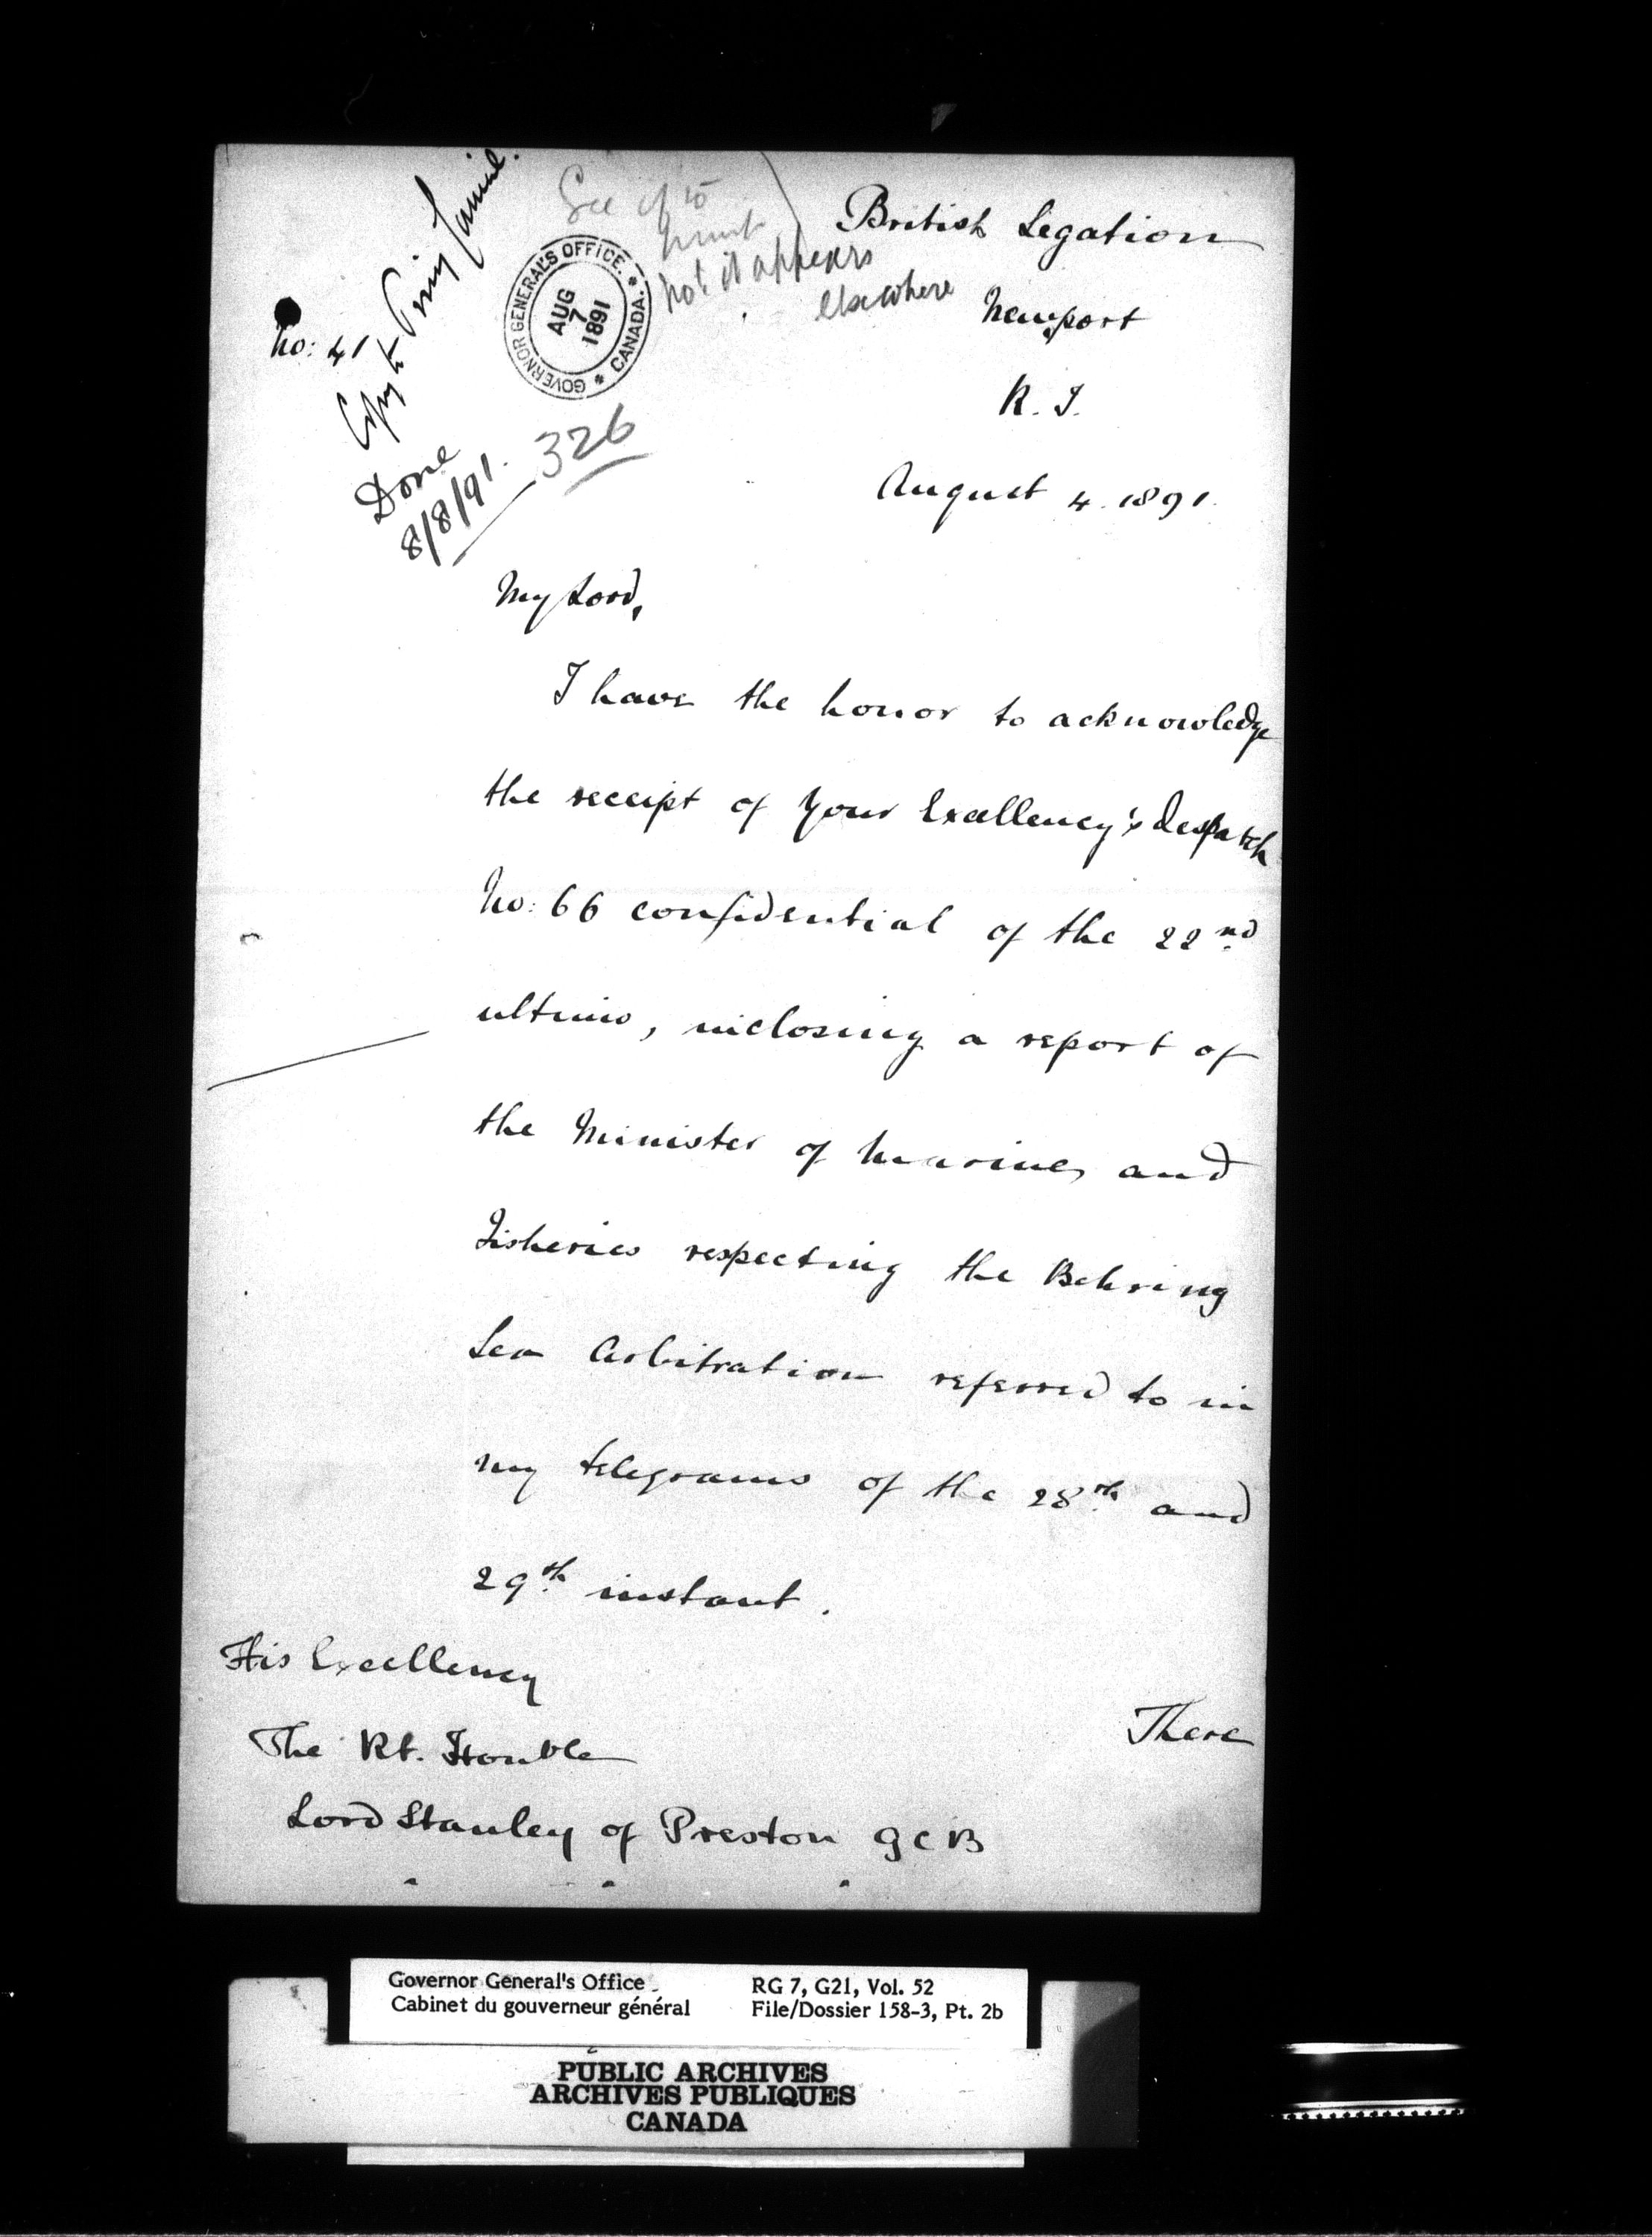 Copy to Privy Council.
See if to
print
not it appears
elsewhere
British Legation
Newport
R. I.
August 4. 1891.
No: 41
GOVERNOR GENERAL'S OFFICE. * CANADA. *
AUG
7
1891
326
Done
8/8/91.
My Lord,
I have the honor to acknowledge
the receipt of Your Excellency's despatch
No: 66 confidential of the 22nd
ultimo, inclosing a report of
the Minister of Marine, and
Fisheries respecting the Behring
Sea Arbitration referred to in
my telegrams of the 28th and
29th instant.
His Excellency
The Rt. Honble
Lord Stanley of Preston GCB
There
Governor General's Office
Cabinet du gouverneur général
RG 7, G21, Vol. 52
File/Dossier 158-3, Pt. 2b
PUBLIC ARCHIVES
ARCHIVES PUBLIQUES
CANADA